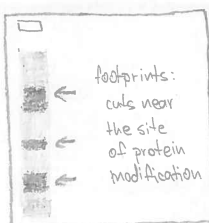 footprints:
cuts near
the site
of protein
modification